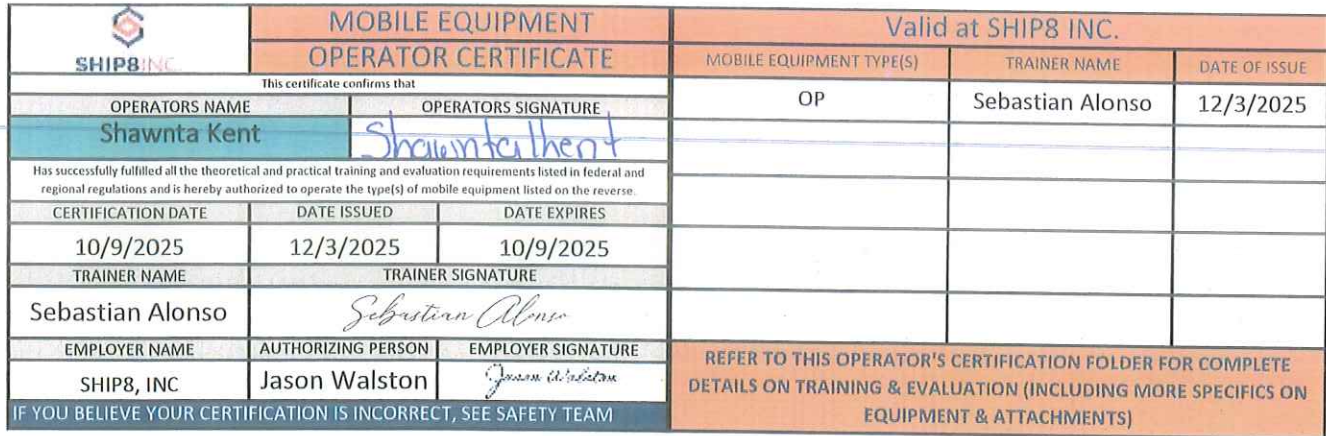 SHIP8 INC.
MOBILE EQUIPMENT
OPERATOR CERTIFICATE
This certificate confirms that
OPERATORS NAME
OPERATORS SIGNATURE
Shawnta Kent
Shawnta Kent
Has successfully fulfilled all the theoretical and practical training and evaluation requirements listed in federal and
regional regulations and is hereby authorized to operate the type(s) of mobile equipment listed on the reverse.
CERTIFICATION DATE
DATE ISSUED
DATE EXPIRES
10/9/2025
12/3/2025
10/9/2025
TRAINER NAME
TRAINER SIGNATURE
Sebastian Alonso
Sebastian Alonso
EMPLOYER NAME
AUTHORIZING PERSON
EMPLOYER SIGNATURE
SHIP8, INC
Jason Walston
Jason Walston
IF YOU BELIEVE YOUR CERTIFICATION IS INCORRECT, SEE SAFETY TEAM
Valid at SHIP8 INC.
MOBILE EQUIPMENT TYPE(S)
TRAINER NAME
DATE OF ISSUE
OP
Sebastian Alonso
12/3/2025
REFER TO THIS OPERATOR'S CERTIFICATION FOLDER FOR COMPLETE
DETAILS ON TRAINING & EVALUATION (INCLUDING MORE SPECIFICS ON
EQUIPMENT & ATTACHMENTS)